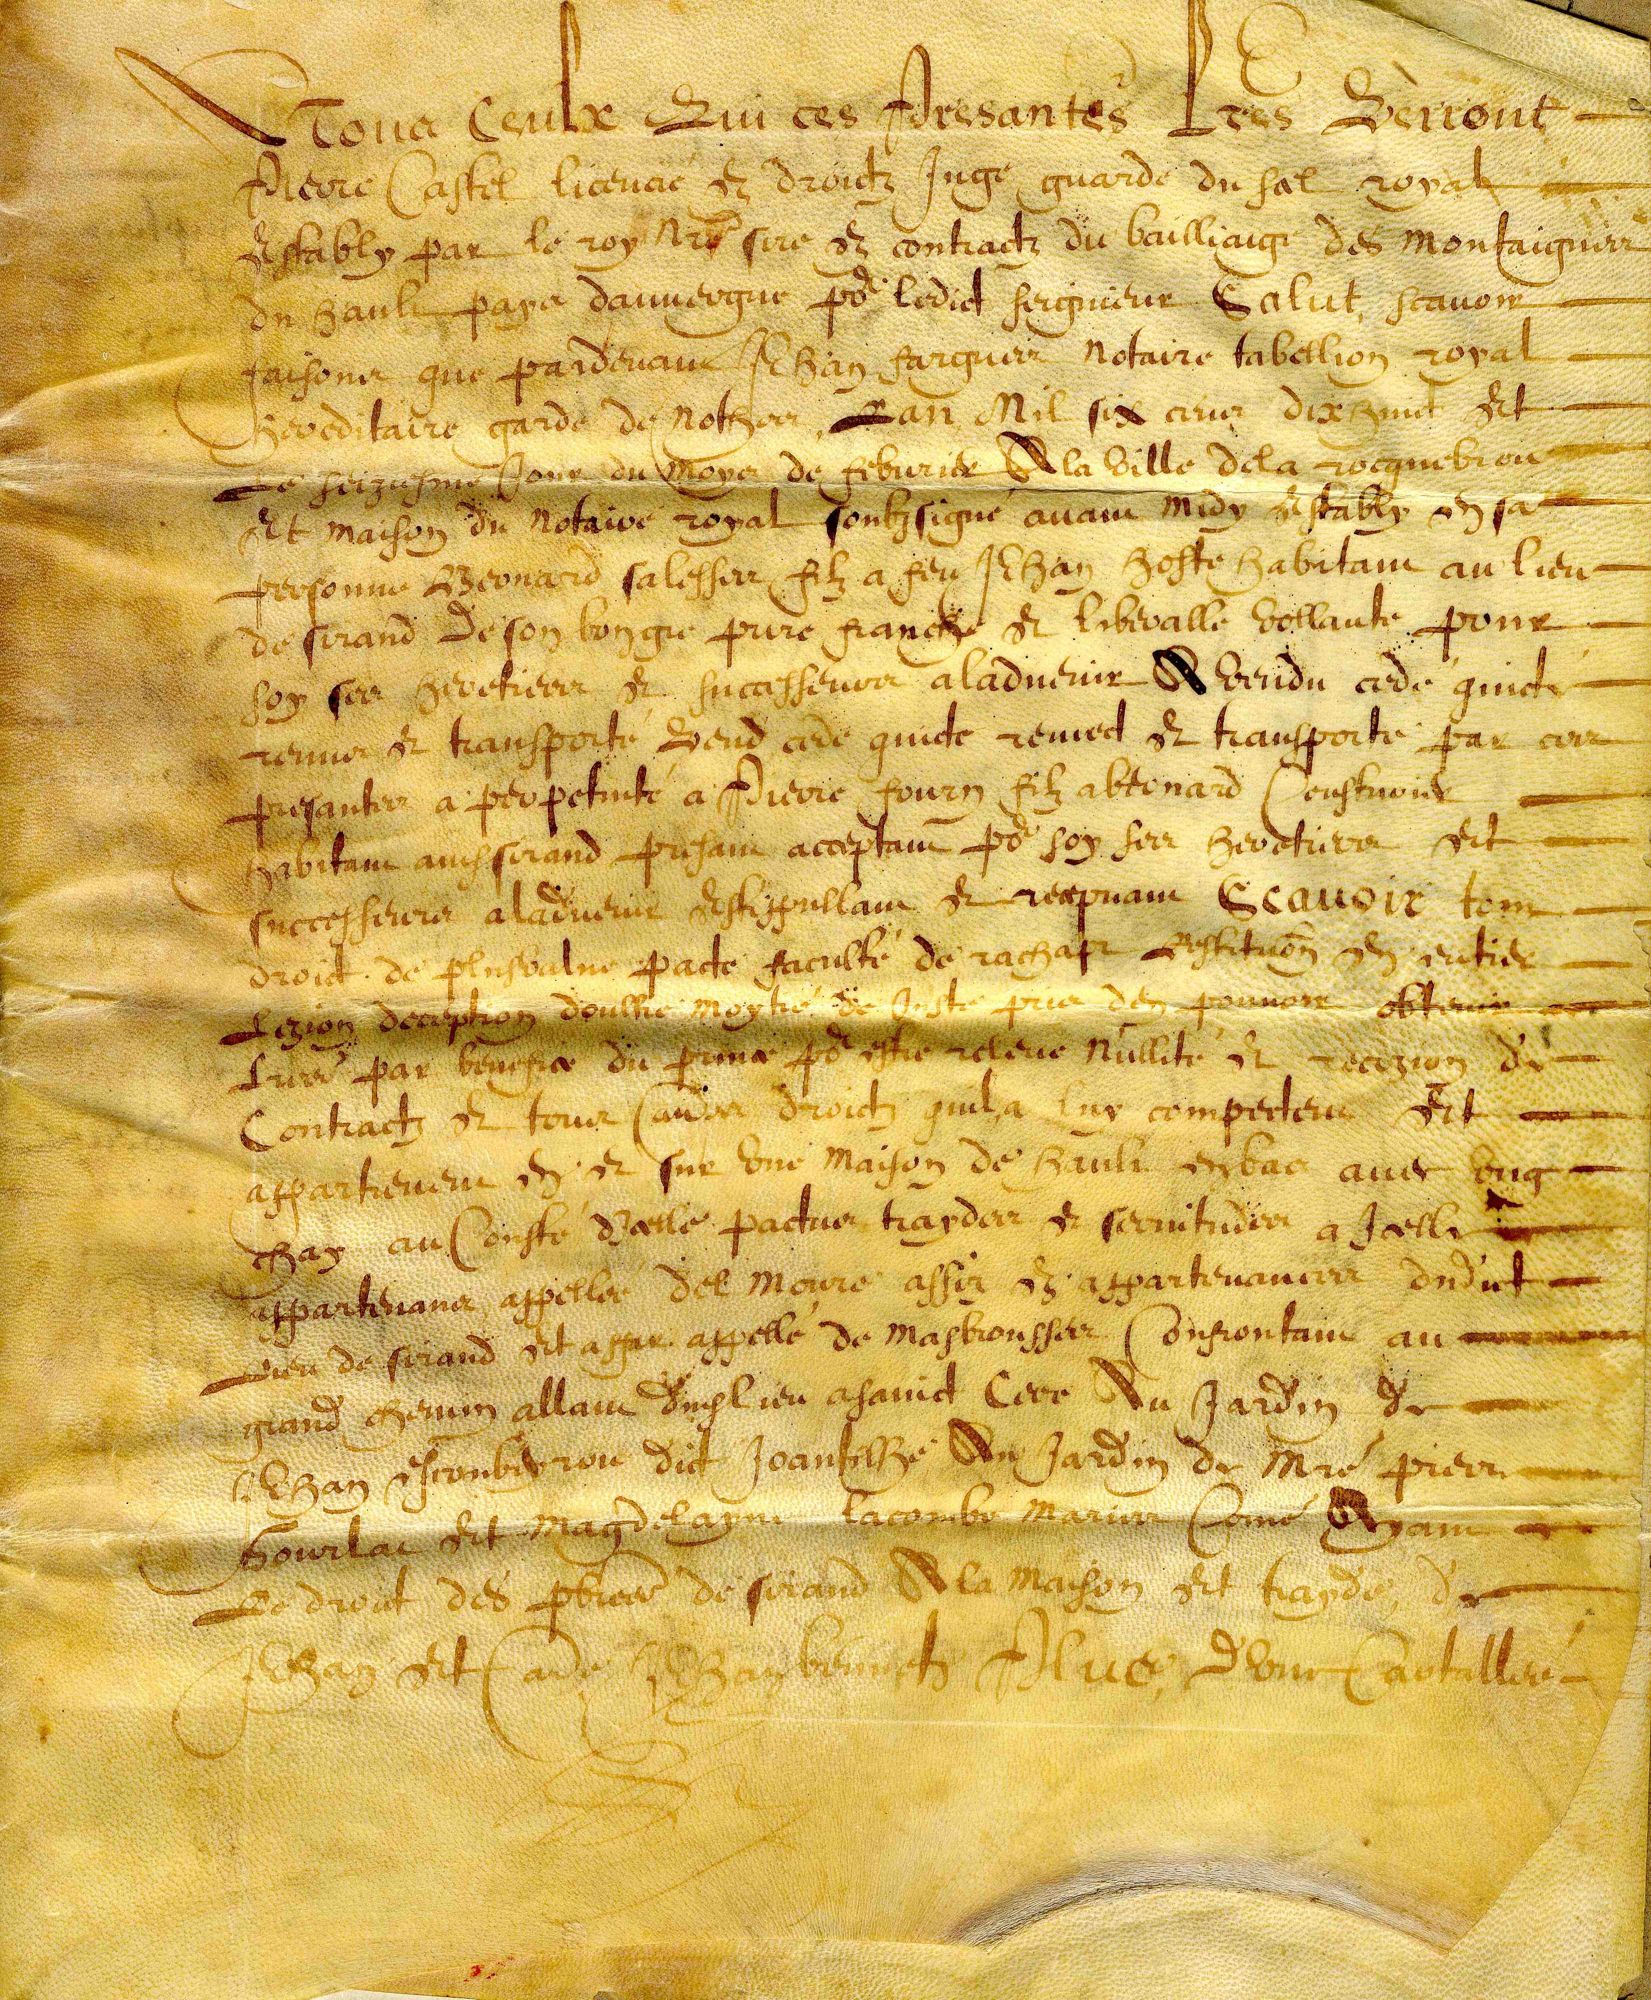 A Tous Ceulx Qui ces presantes Lres Verront
Pierre Castel licencié et droictz Juge guarde du scel royal
Estably par le roy nre sire et contractz du bailliaige des montaignes
du hault pays dauvergne po ledict seigneur Salut scavoir
faisons que pardevant Jehan farques Notaire tabellion royal
hereditaire garde de nothes Lan Mil six cens dixhuict Et
Le seiziesme Jour du moys de febvrier A la ville dela rocquebrou
Et maison du Notaire royal soubzsigné avant midy Estably en sa
personne Bernard salesses filz a feu Jehan hoste habitant au lieu
de sirand De son bon gre pure franche et liberalle vollante pour
soy ses heretiers et successeurs aladvenir A vendu cedé quicté
remis et transporté Vend cede quicte remect et transporte par ces
presantes a perpetuité a Pierre fourn filz a bernard
habitant audt sirand presant acceptant po soy ses heretiers Et
successeurs aladvenir Estippullant et recepvant Scavoir tout
droict de plusvalue pacte faculté de rachapt Restituon en entier
Lezion deception doultre moytié de Juste pris den pouvoir obtenir
Lres par benefice du prince po estre relevé Nullité et recizion de
Contractz et tous aultres droictz quil a luy compectent Et
appartienent en et sur une Maison de hault enbas avec ung
chay au Cousté dicelle pactus traydes et servitudes a Jcelle
appartenans appellée del Moure assiz et appartenances dudict
Lieu de sirand Et appellé de masbrousses Confrontant au
grand chemin allant dudt lieu a sainct Cere Au Jardin de
Jehan dict Au Jardin de Mre pierre
hourlac Et Magdelayne lacombe Maries Come Ayant
Le droict des pbres de sirand A la maison Et trayde de
Jehan Et